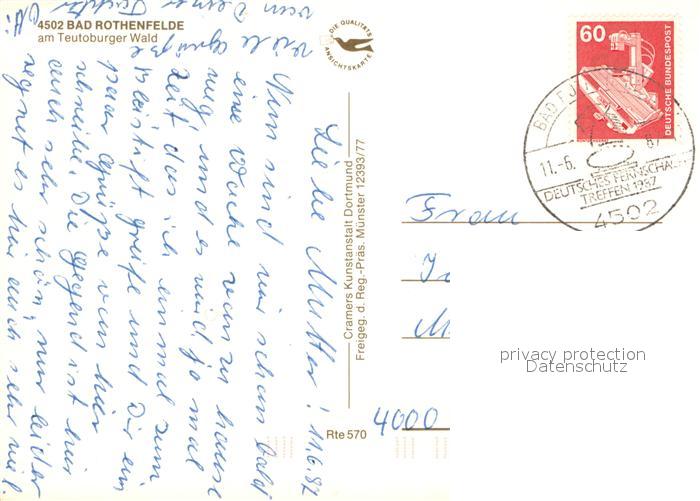 4502 BAD ROTHENFELDE
am Teutoburger Wald
DIE QUALITÄTS
ANSICHTSKARTE
60
DEUTSCHE BUNDESPOST
BAD
11.-6. 87
DEUTSCHES FERNSCHACH
TREFFEN 1987
4502
Liebe Mutter! 11.6.87
Nun sind wir schon bald
eine Woche von zu hause
weg, und es wird ja mal
Zeit das ich einmal zum
Bleistift greife und Dir ein
paar Grüße von hier
schreibe. Die Gegend ist hier
auch sehr schön, nur leider
regnet es hier auch sehr viel.
viele Grüße
von Deiner Tochter
Cramers Kunstanstalt Dortmund
Freigeg. d. Reg.-Präs. Münster 12393/77
Rte 570
Frau
4000
privacy protection
Datenschutz